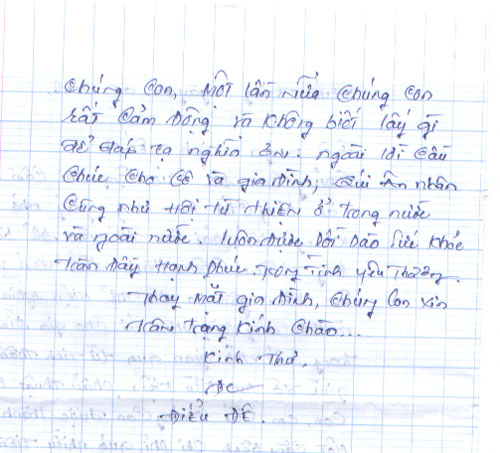 Chúng Con, Một lần nữa Chúng Con
rất Cảm Động và không biết lấy gì
để đáp tạ nghĩa ơn. ngoài lời Cầu
Chúc Cho Cô và gia Đình, Quí Ân nhân
Cũng như Hội từ thiện ở trong nước
và ngoài nước. luôn được Dồi Dào Sức khỏe
tràn Đầy Hạnh phúc trong Tình yêu Thương.
Thay Mặt gia Đình, Chúng Con xin
trân trọng kính Chào...
Kính Thơ.
Điểu Đê.